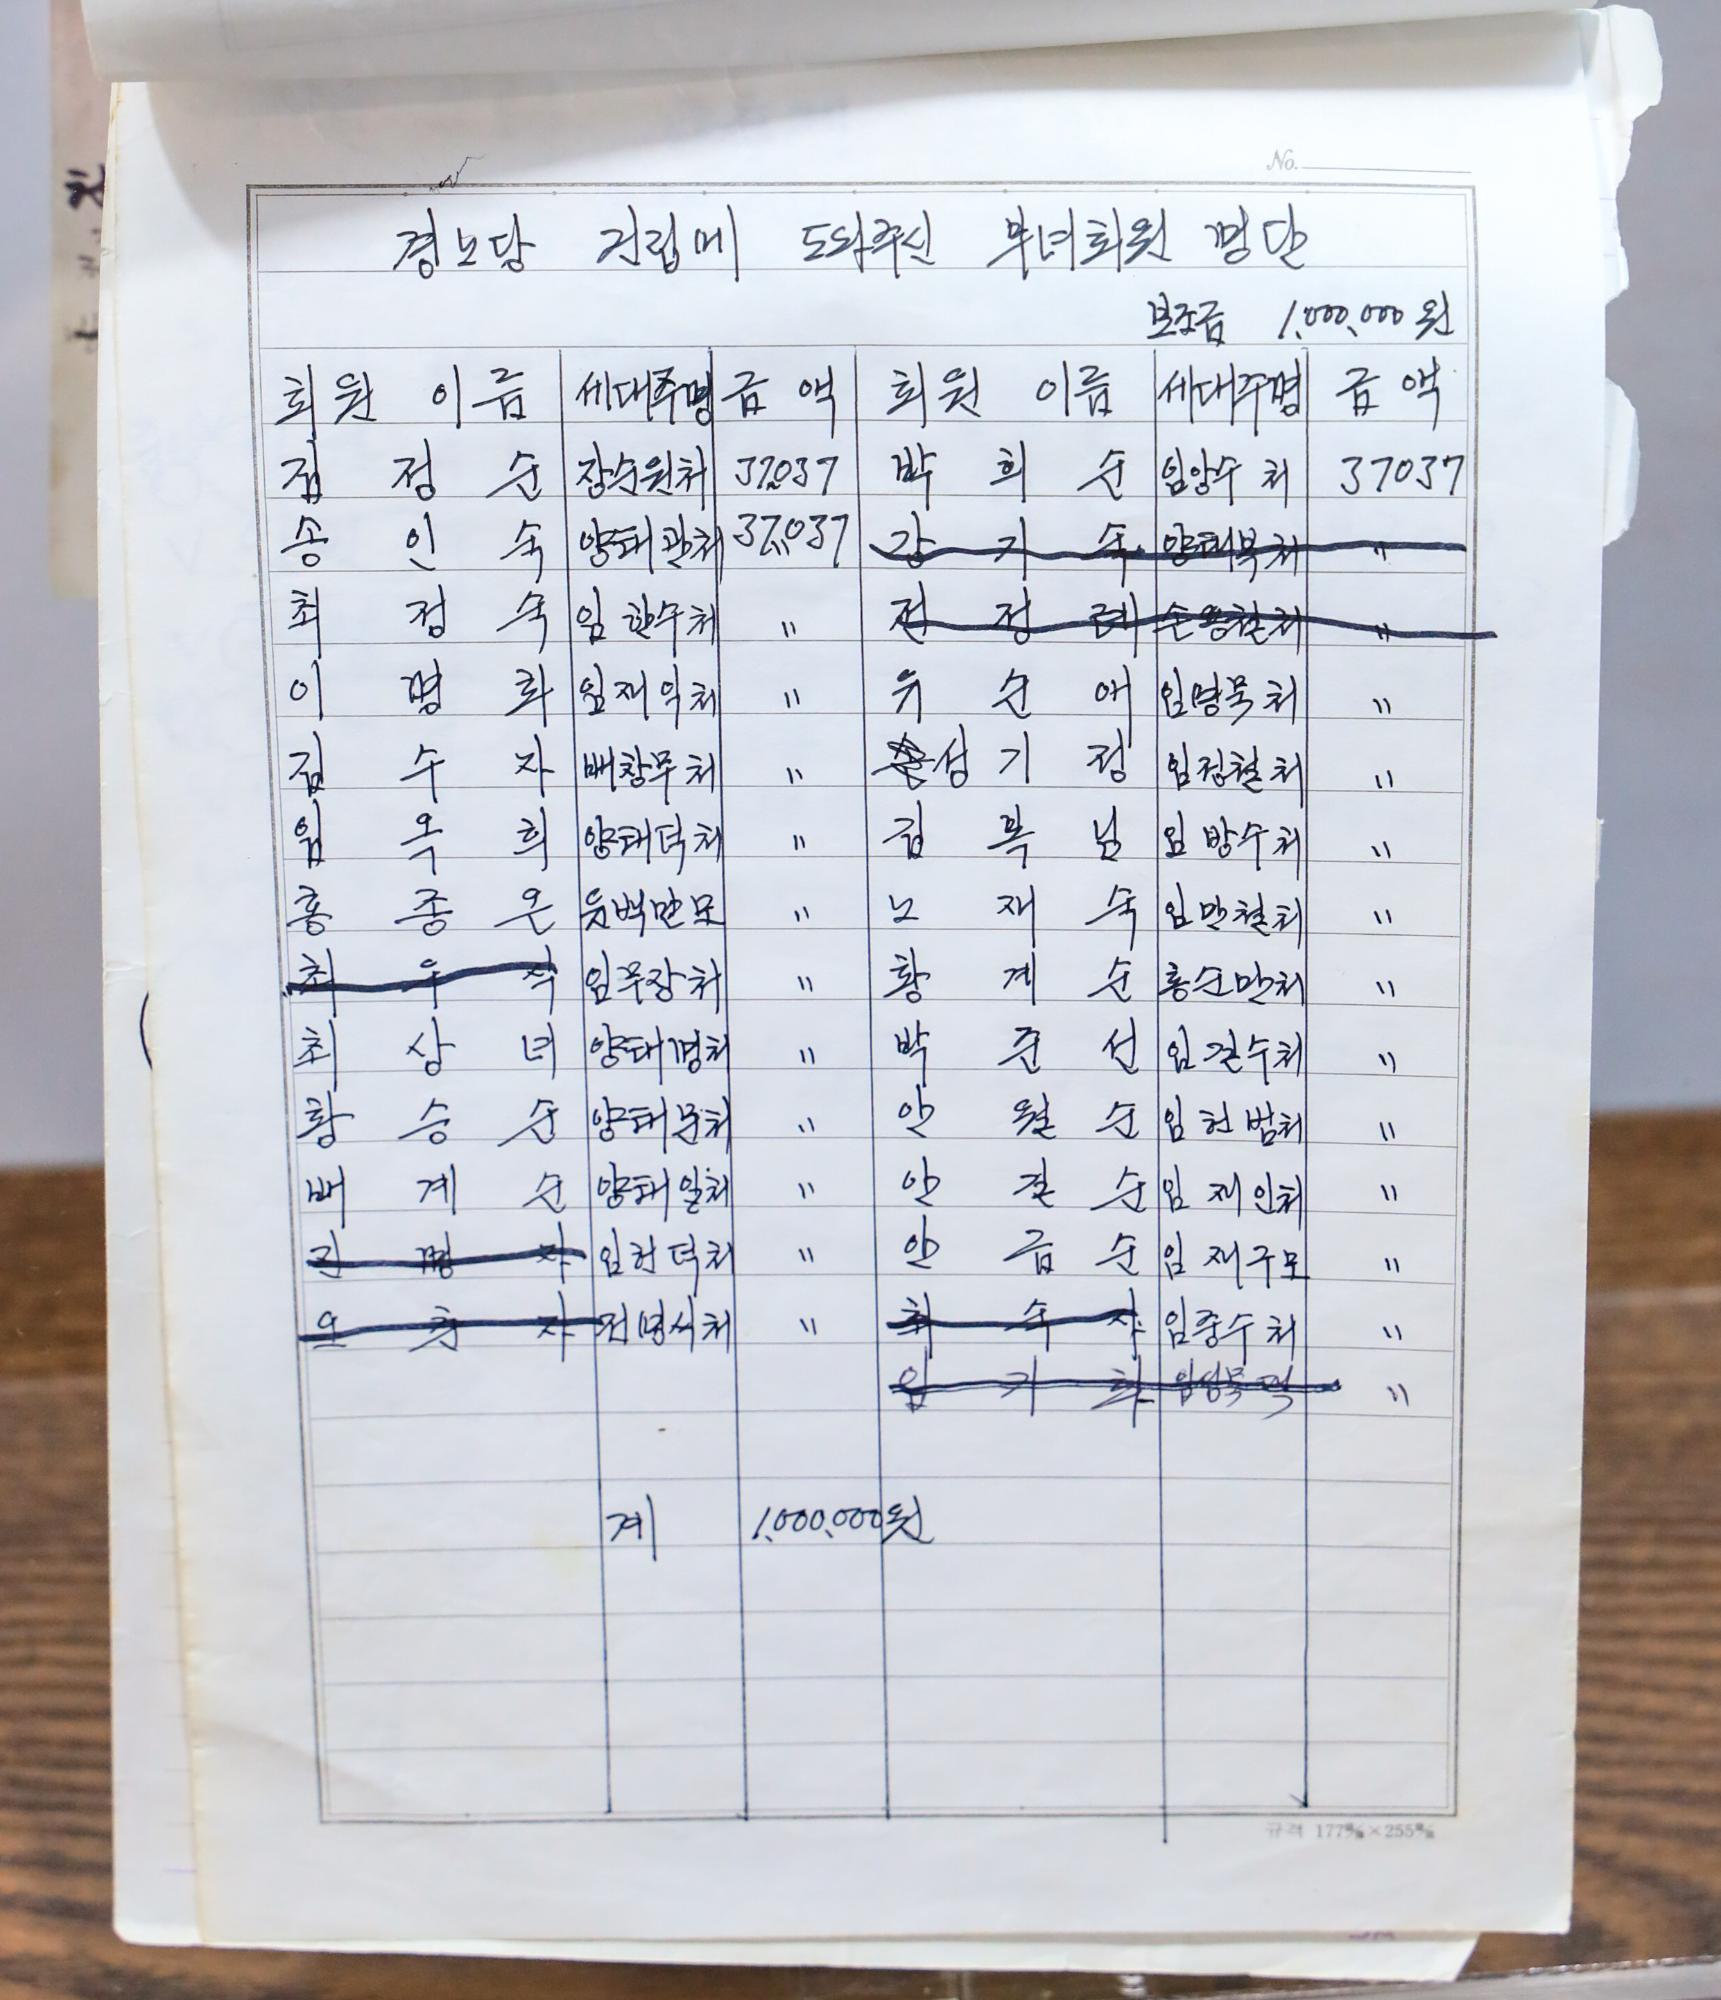 No.
경노당 건립에 도와주신 부녀회원 명단
보조금 1,000,000원
회원 이름 세대주명 금액 회원 이름 세대주명 금액
김정순 장순원처 37,037 박희순 임양수처 37037
송인숙 양태관처 37,037 강기숙 양태복처 〃
최정숙 임한수처 〃 전정례 손용철처 〃
이명화 임재익처 〃 유순애 임명묵처 〃
김수자 배창무처 〃 성기정 임정철처 〃
임옥희 양태덕처 〃 김복님 임방수처 〃
홍종온 윤백만모 〃 노재숙 임만철처 〃
최우식 임무장처 〃 황계순 홍순만처 〃
최상녀 양태경처 〃 박준선 임걸수처 〃
황승순 양태문처 〃 안월순 임헌범처 〃
배계순 양태일처 〃 안길순 임재인처 〃
진명자 임헌덕처 〃 안금순 임재구모 〃
오춘자 전명식처 〃 최숙자 임중수처 〃
임기화 임성묵댁 〃
계 1,000,000원
규격 177㎜×255㎜